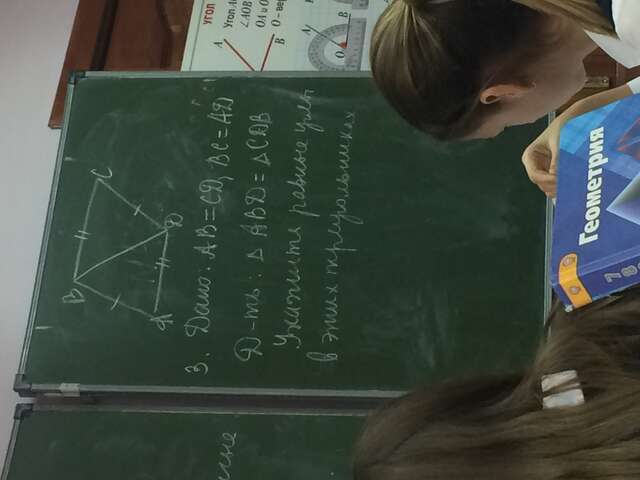 B
C
A
D
3. Дано: AB=CD, BC=AD
Д-ть: △ ABD = △CDB
Укажите равные углы
в этих треугольниках
УГОЛ
A
B
∠AOB
O – вер
A
O
B
Геометрия